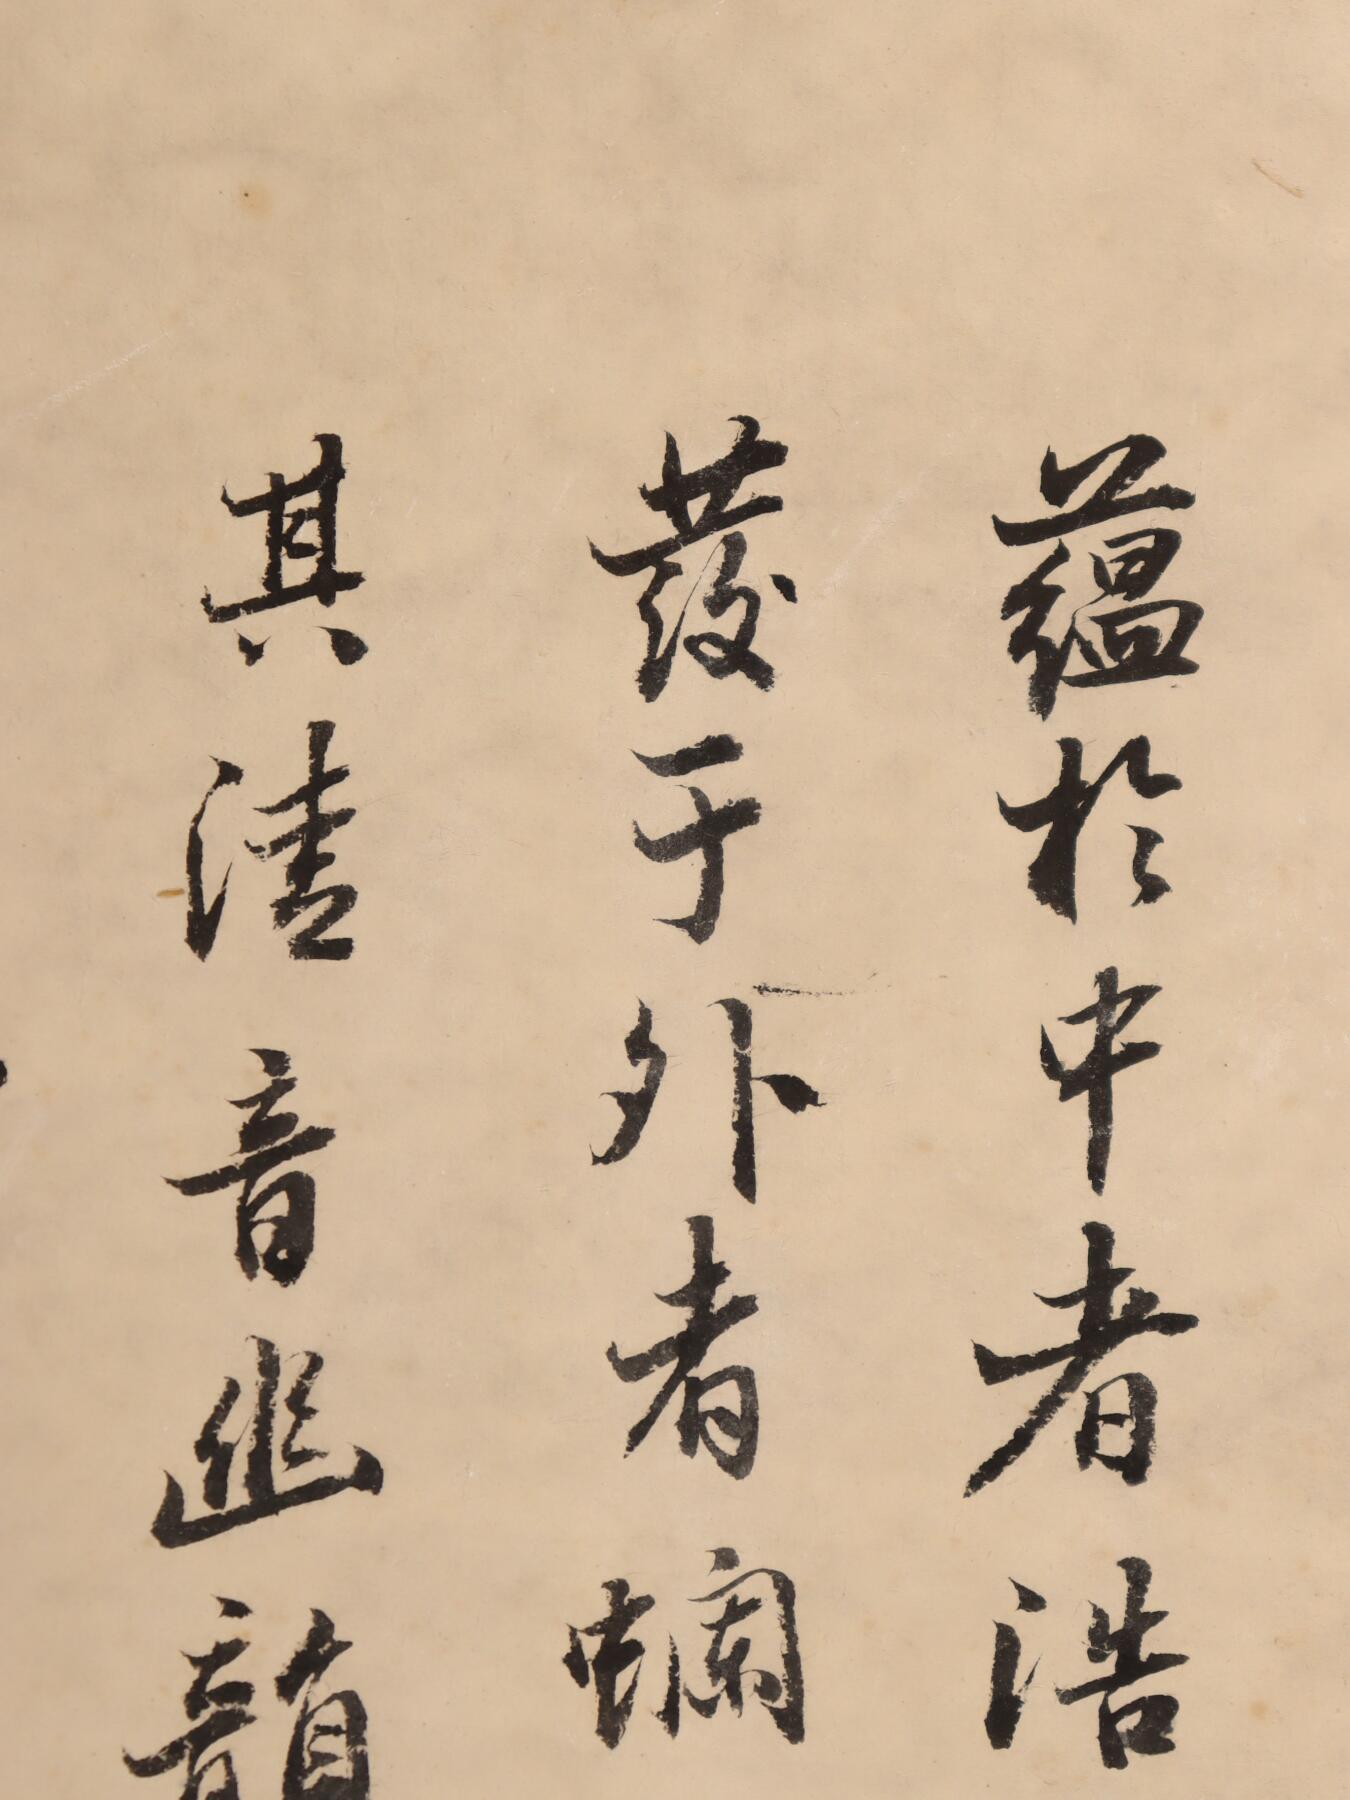 蕴於中者浩
發于外者爛
其清音幽韻